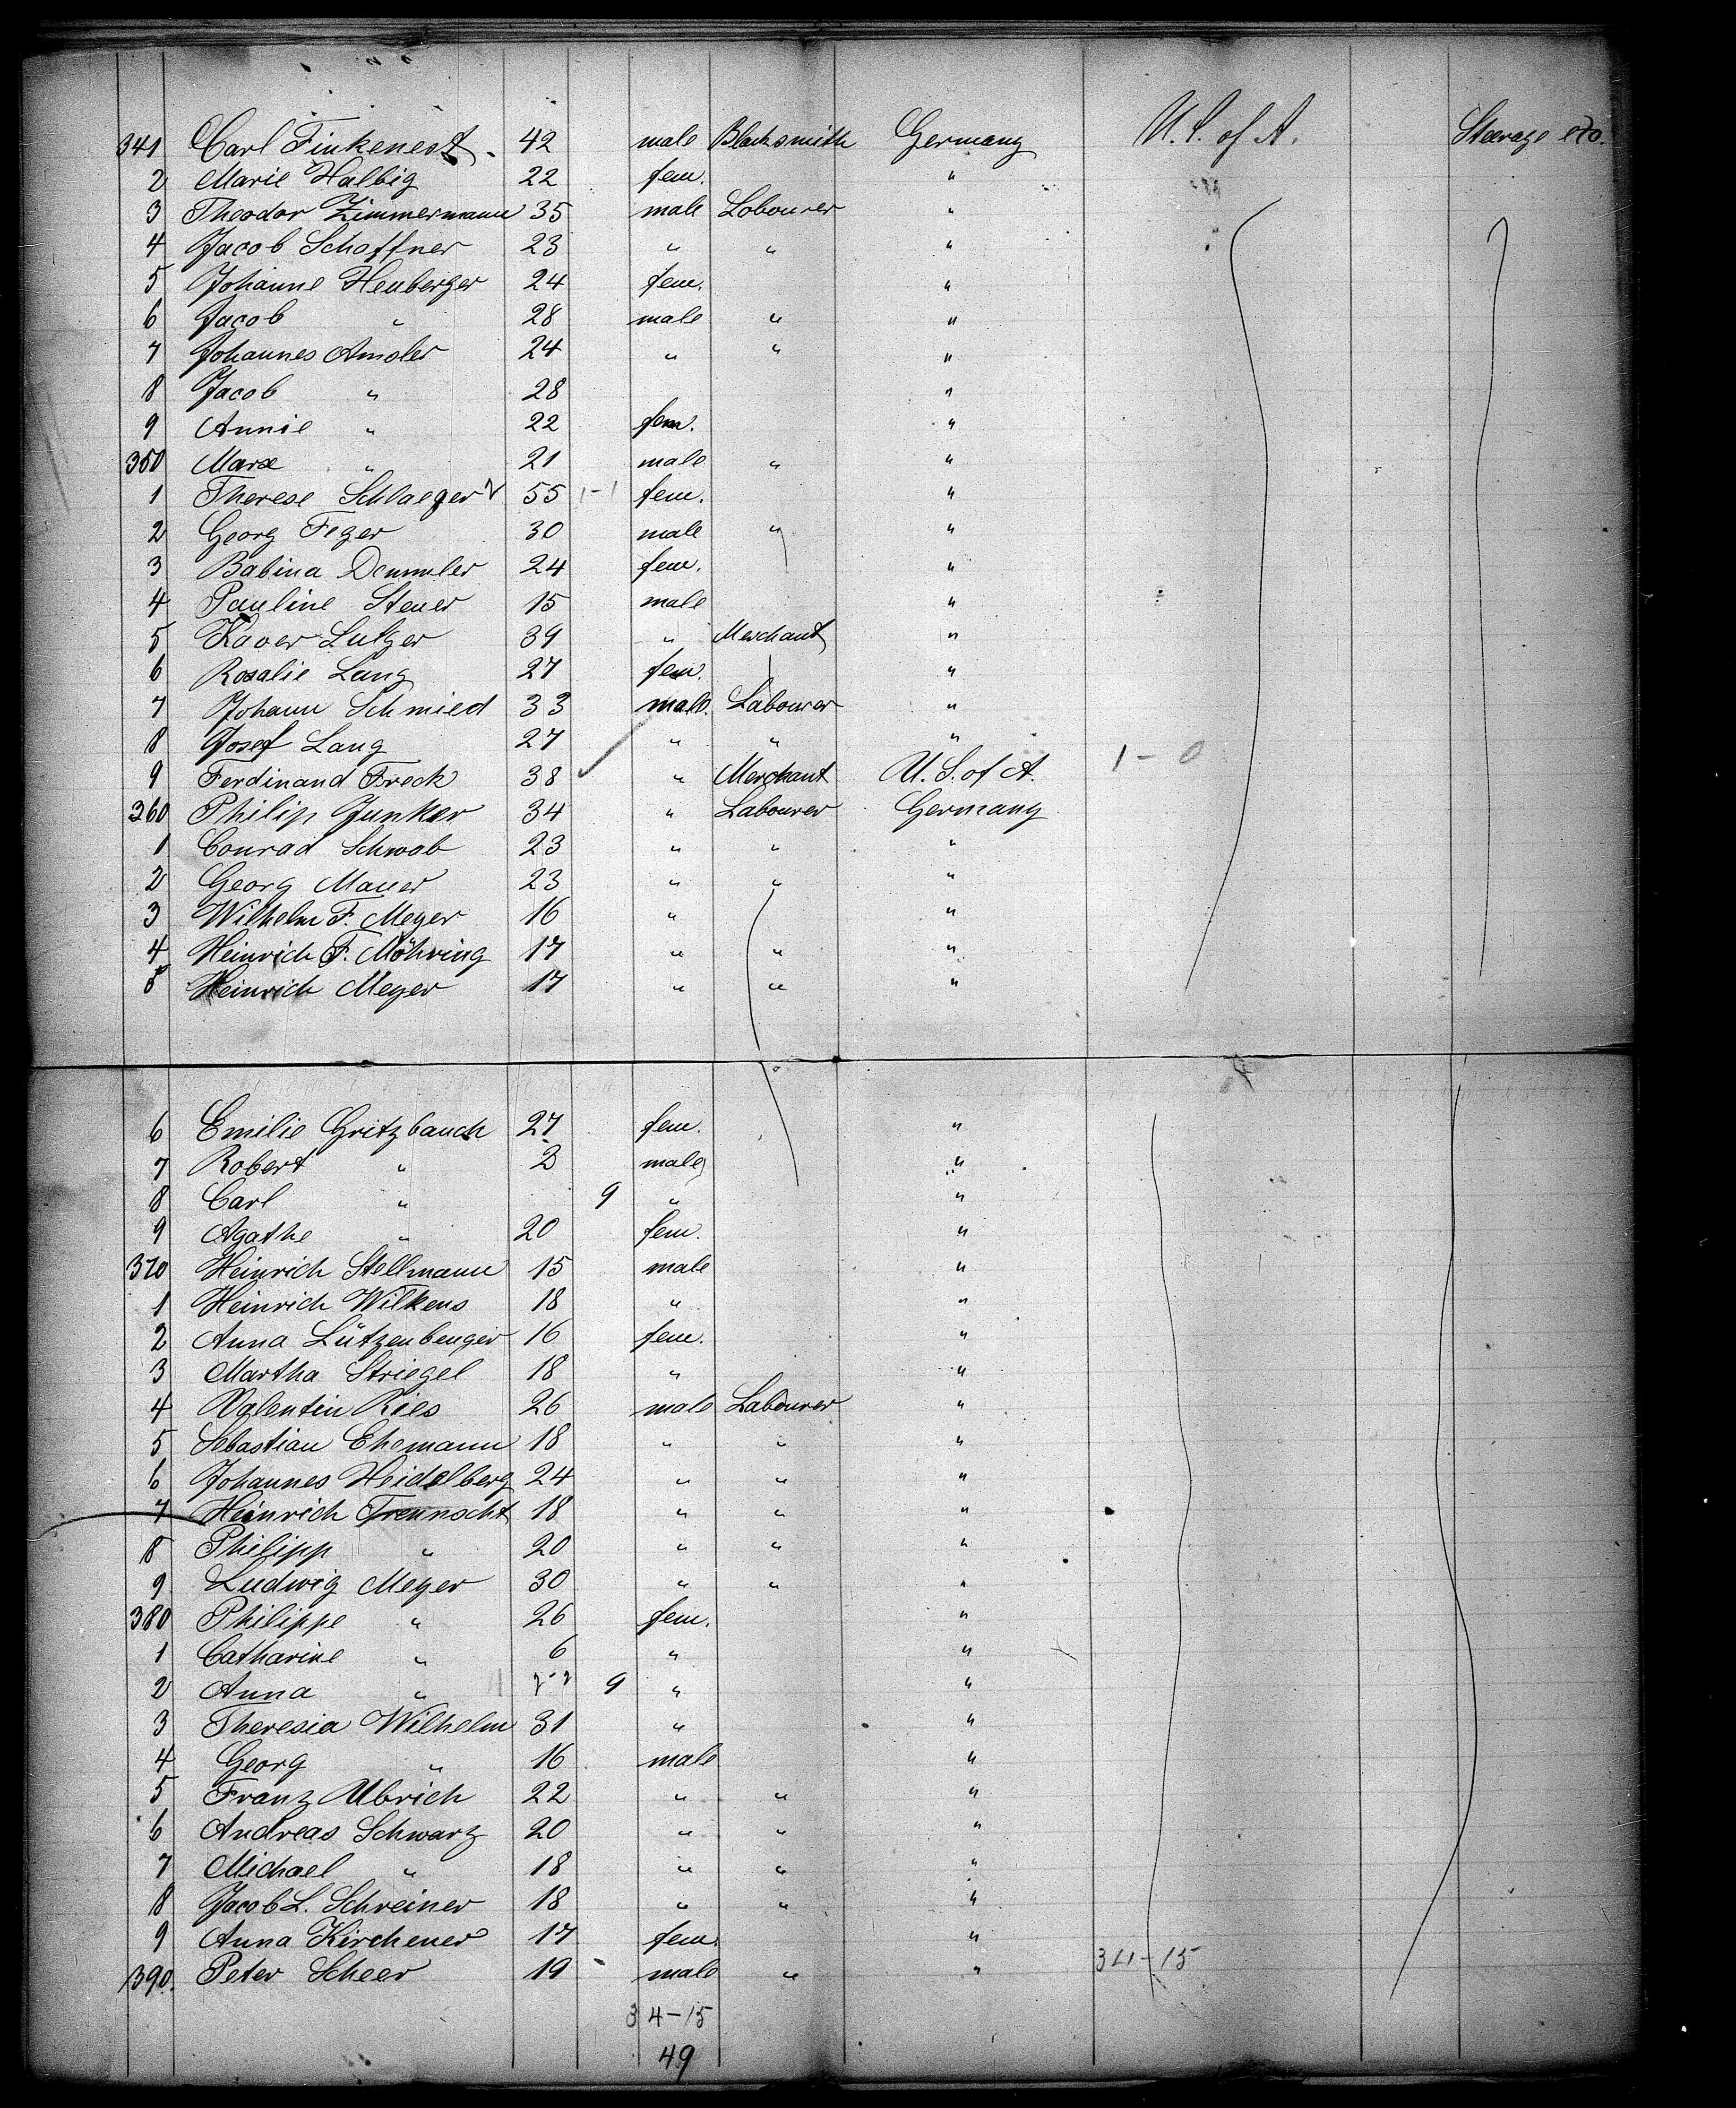 341 Carl Finkenest. 42 male Blacksmith Germany U. S. of A. Steerage etc.
2 Marie Halbig 22 fem. "
3 Theodor Zimmermann 35 male Labourer "
4 Jacob Schaffner 23 " " "
5 Johanne Heuberger 24 fem. "
6 Jacob " 28 male " "
7 Johannes Amsler 24 " " "
8 Jacob " 28 "
9 Annie " 22 fem. "
350 Marx " 21 male " "
1 Therese Schlaeger 55 1-1 fem. "
2 Georg Feger 30 male " "
3 Babina Demmler 24 fem. "
4 Pauline Steuer 15 male "
5 Xaver Lutzer 39 " Merchant "
6 Rosalie Lang 27 fem. "
7 Johann Schmied 33 male. Labourer "
8 Josef Lang 27 " " "
9 Ferdinand Freck 38 " Merchant U. S. of A. 1-0
360 Philip Junker 34 " Labourer Germany
1 Conrad Schwab 23 " " "
2 Georg Mauer 23 " " "
3 Wilhelm F. Meyer 16 " "
4 Heinrich F. Möhring 17 " " "
5 Heinrich Meyer 17 " " "
6 Emilie Gritzbauch 27 fem. "
7 Robert " 2 male "
8 Carl " 9 " "
9 Agathe " 20 fem. "
370 Heinrich Stellmann 15 male "
1 Heinrich Wilkens 18 " "
2 Anna Lützenbenger 16 fem. "
3 Martha Striegel 18 " "
4 Valentin Ries 26 male Labourer "
5 Sebastian Ehemann 18 " " "
6 Johannes Heidelberg 24 " " "
7 Heinrich 18 " " "
8 Philipp " 20 " " "
9 Ludwig Meyer 30 " " "
380 Philippe " 26 fem. "
1 Catharine " 6 " "
2 Anna " 9 " "
3 Theresia Wilhelm 31 " "
4 Georg " 16 male "
5 Franz Ulbrich 22 " " "
6 Andreas Schwarz 20 " " "
7 Michael " 18 " " "
8 Jacob L. Schreiner 18 " " "
9 Anna Kirchener 17 fem. "
390. Peter Scheer 19 male " " 34-15
34-15
49